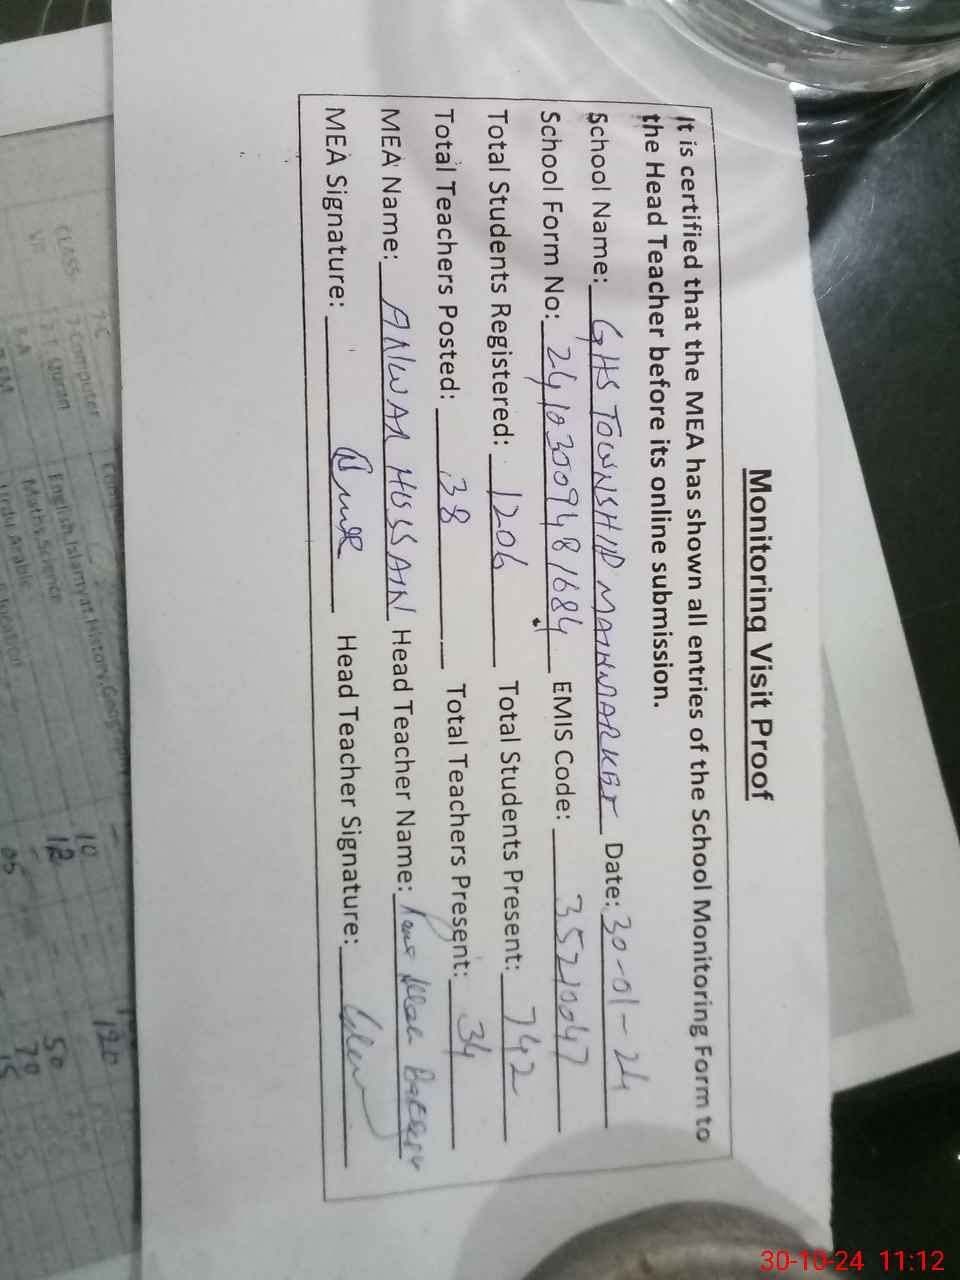 Monitoring Visit Proof
It is certified that the MEA has shown all entries of the School Monitoring Form to
the Head Teacher before its online submission.
School Name: GHS TOWNSHIP MAINMARKET Date: 30-01-24
School Form No: 24103009481684 EMIS Code: 35210047
Total Students Registered: 1206 Total Students Present: 742
Total Teachers Posted: 38 Total Teachers Present: 34
MEA Name: ANWAR HUSSAIN Head Teacher Name:
MEA Signature: Head Teacher Signature:
CLASS
VII
7C
7 Computer
7.T Quran
English, Islamyat, History, Geog
Maths, Science
Urdu, Arabic
10
12
05
120
50
70
30-10-24 11:12